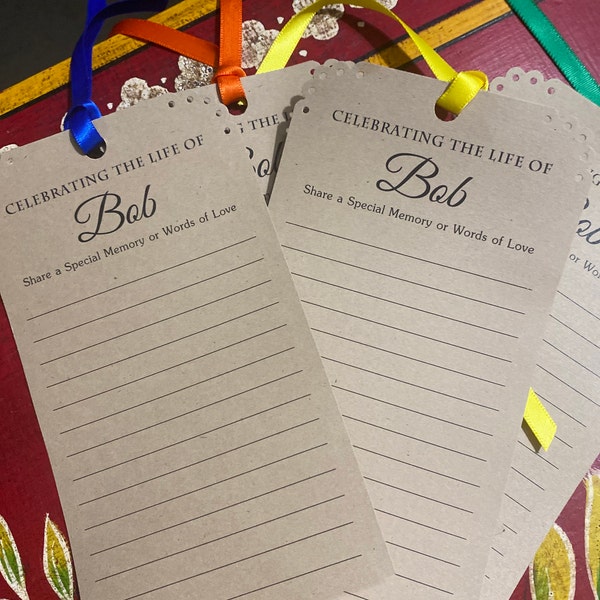 CELEBRATING THE LIFE OF
Bob
Share a Special Memory or Words of Love
THE LIFE OF
Bob
CELEBRATING THE LIFE OF
Bob
Share a Special Memory or Words of Love
Bob
or Words